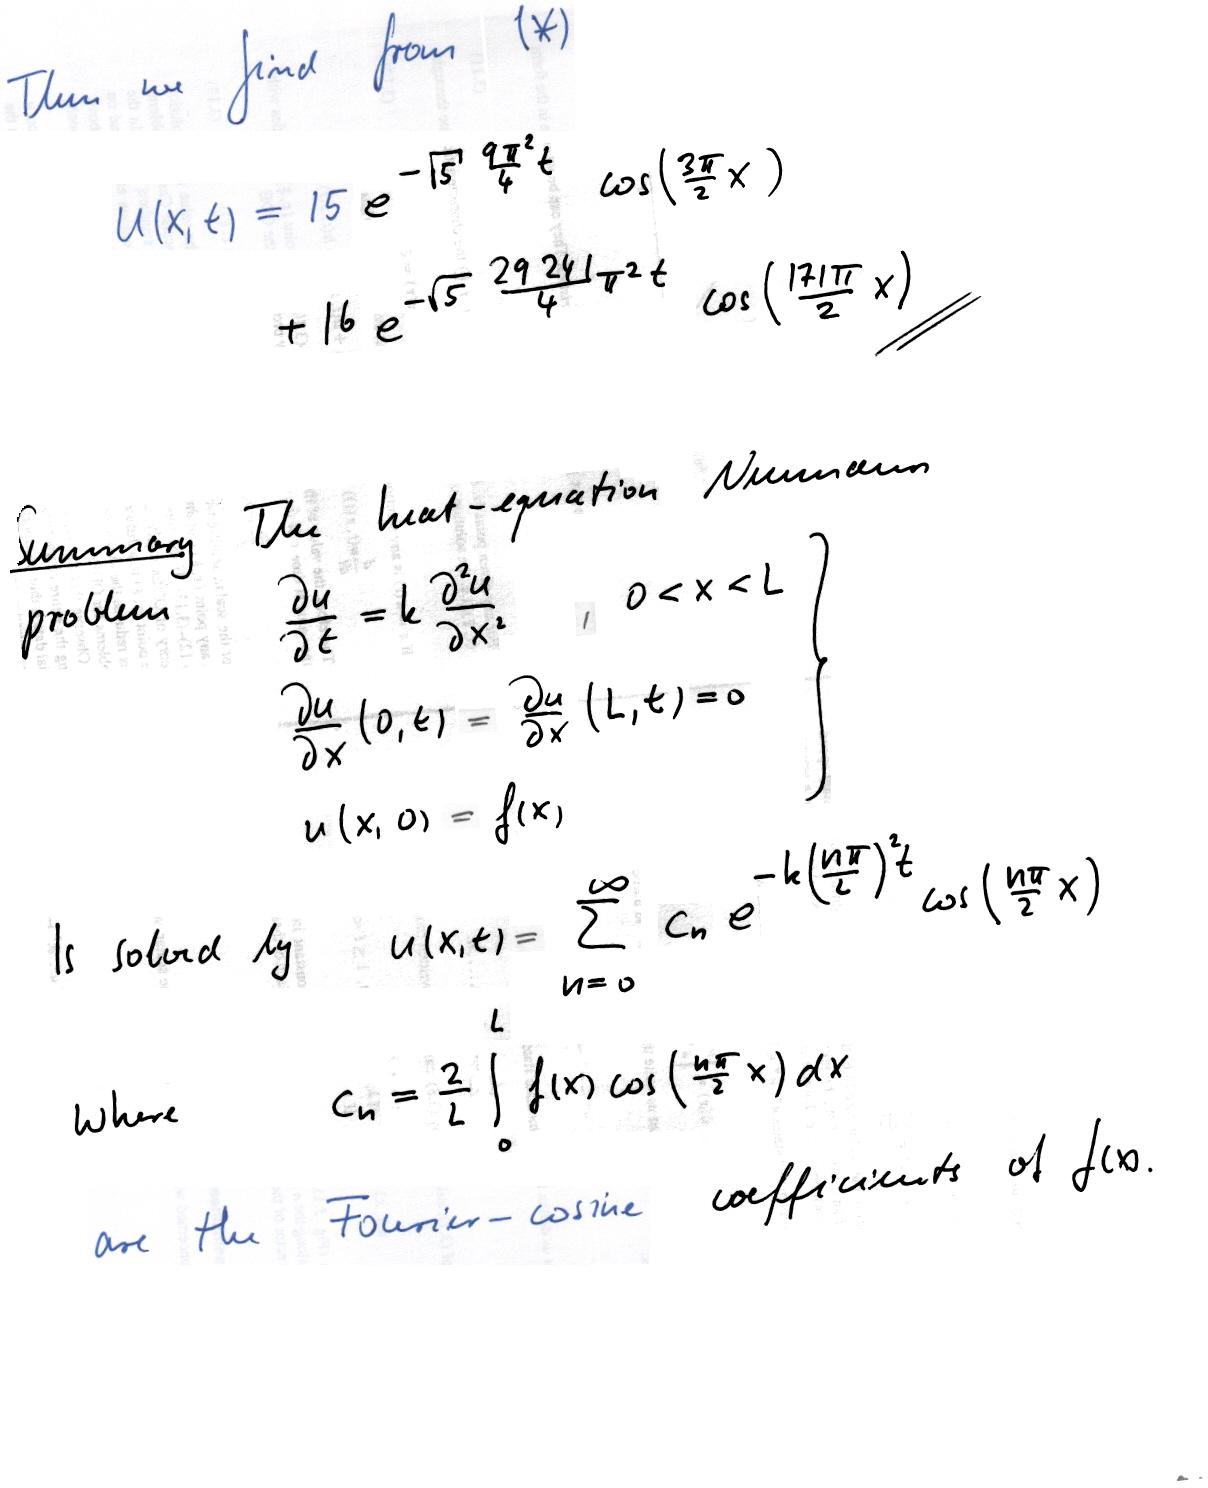 Then we find from (*)
u(x,t) = 15 e^{-√5 9π²/4 t} cos(3π/2 x)
+ 16 e^{-√5 29241/4 π² t} cos(171π/2 x)
Summary The heat-equation Neumann
problem ∂u/∂t = k ∂²u/∂x² , 0 < x < L }
∂u/∂x (0,t) = ∂u/∂x (L,t) = 0
u(x,0) = f(x)
Is solved by u(x,t) = ∑_{n=0}^{∞} c_n e^{-k(nπ/L)² t} cos(nπ/2 x)
Where c_n = 2/L ∫_0^L f(x) cos(nπ/2 x) dx
are the Fourier-cosine coefficients of f(x).